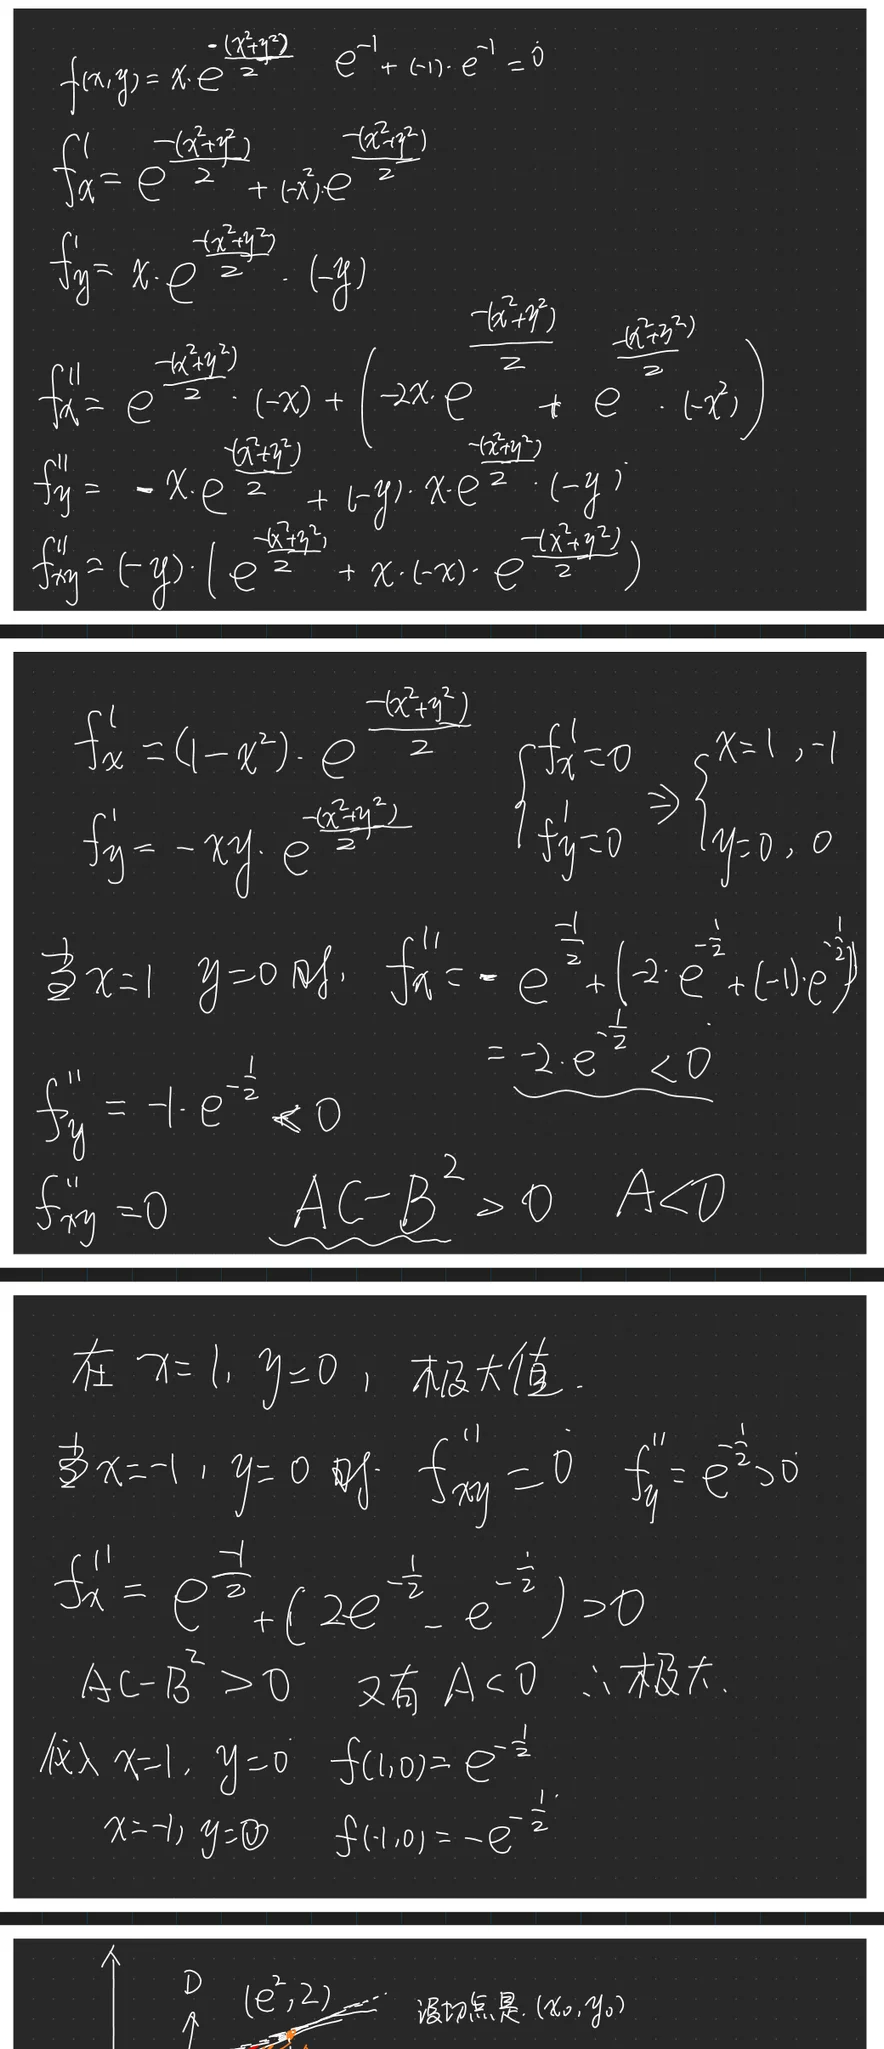 f(x,y)=x·e^{-(x²+y²)/2}  e^{-1}+(-1)·e^{-1}=0
f'x=e^{-(x²+y²)/2}+(-x²)·e^{-(x²+y²)/2}
f'y=x·e^{-(x²+y²)/2}·(-y)
f''x=e^{-(x²+y²)/2}·(-x)+(-2x·e^{-(x²+y²)/2}+e^{-(x²+y²)/2}·(-x²))
f''y=-x·e^{-(x²+y²)/2}+(-y)·x·e^{-(x²+y²)/2}·(-y)
f''xy=(-y)·(e^{-(x²+y²)/2}+x·(-x)·e^{-(x²+y²)/2})
f'x=(1-x²)·e^{-(x²+y²)/2}  {f'x=0 ⇒ {x=1,-1
f'y=-xy·e^{-(x²+y²)/2}  {f'y=0  {y=0,0
当x=1 y=0时, f''x=-e^{-1/2}+(-2·e^{-1/2}+(-1)·e^{-1/2})
=-2·e^{-1/2}<0
f''y=-1·e^{-1/2}<0
f''xy=0  AC-B²>0  A<0
在 x=1, y=0, 极大值.
当x=-1, y=0时 f''xy=0  f''y=e^{-1/2}>0
f''x=e^{-1/2}+(2e^{-1/2}-e^{-1/2})>0
AC-B²>0  又有 A<0 ∴极大.
代入 x=1, y=0  f(1,0)=e^{-1/2}
x=-1, y=0  f(-1,0)=-e^{-1/2}
D (e²,2) 设切点是(x₀,y₀)